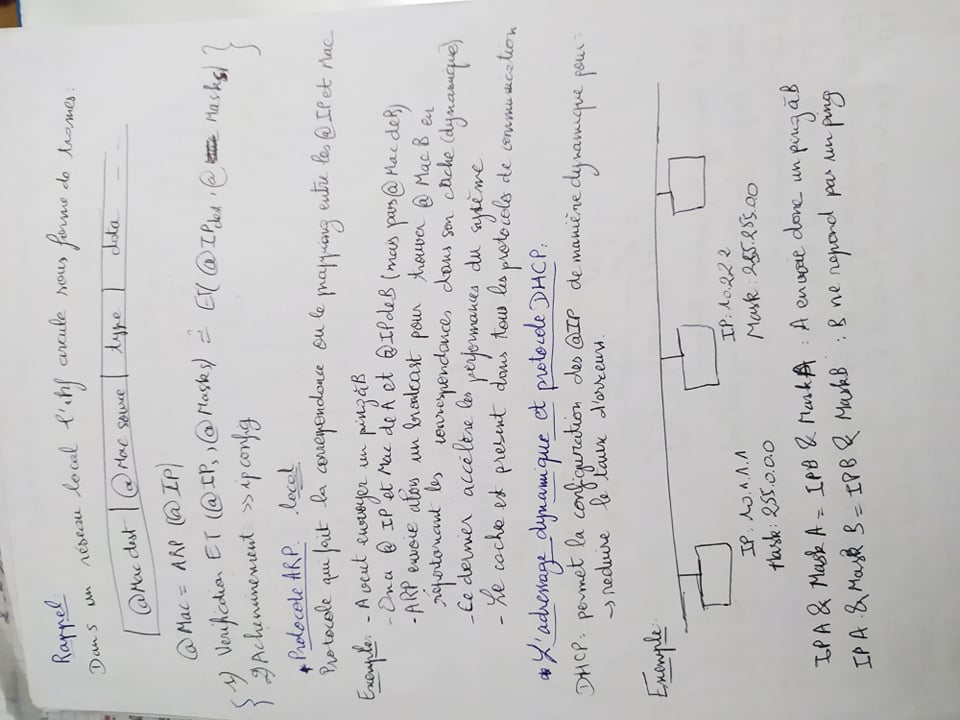 Rappel
Dans un réseau local l'inf circule sous forme de trames:
@Mac dest | @Mac source | type | data
@Mac = ARP (@IP)
1) Verification ET (@IPs, @Masks) = ET( @IPdest, @ Masks)
2) Acheminement >> ipconfig
* Protocole ARP. local
Protocole qui fait la correspondance ou le mapping entre les @IP et Mac
Exemple: - A veut envoyer un ping à B
- On a @ IP et Mac de A et @IP de B (mais pas @Mac de B)
- ARP envoie alors un broadcast pour trouver @ Mac B en
répertoriant les correspondances dans son cache (dynamique)
- Ce dernier accélère les performances du système
- Le cache est present dans tous les protocoles de communication
* L'adressage dynamique et protocole DHCP:
DHCP: permet la configuration des @IP de manière dynamique pour:
→ reduire le taux d'erreurs.
Exemple:
IP: 10.1.1.1
Mask: 255.0.0.0
IP: 10.2.2.2
Mask: 255.255.0.0
IPA & Mask A = IPB & Mask A : A envoie donc un ping à B
IPA & Mask B = IPB & Mask B : B ne repond pas un ping